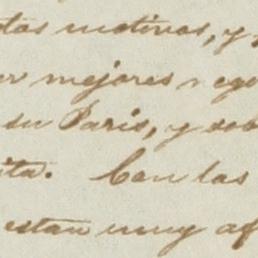 tos motivos, y
er mejores nego
su Paris, y sob
ita. Con las
estan muy af